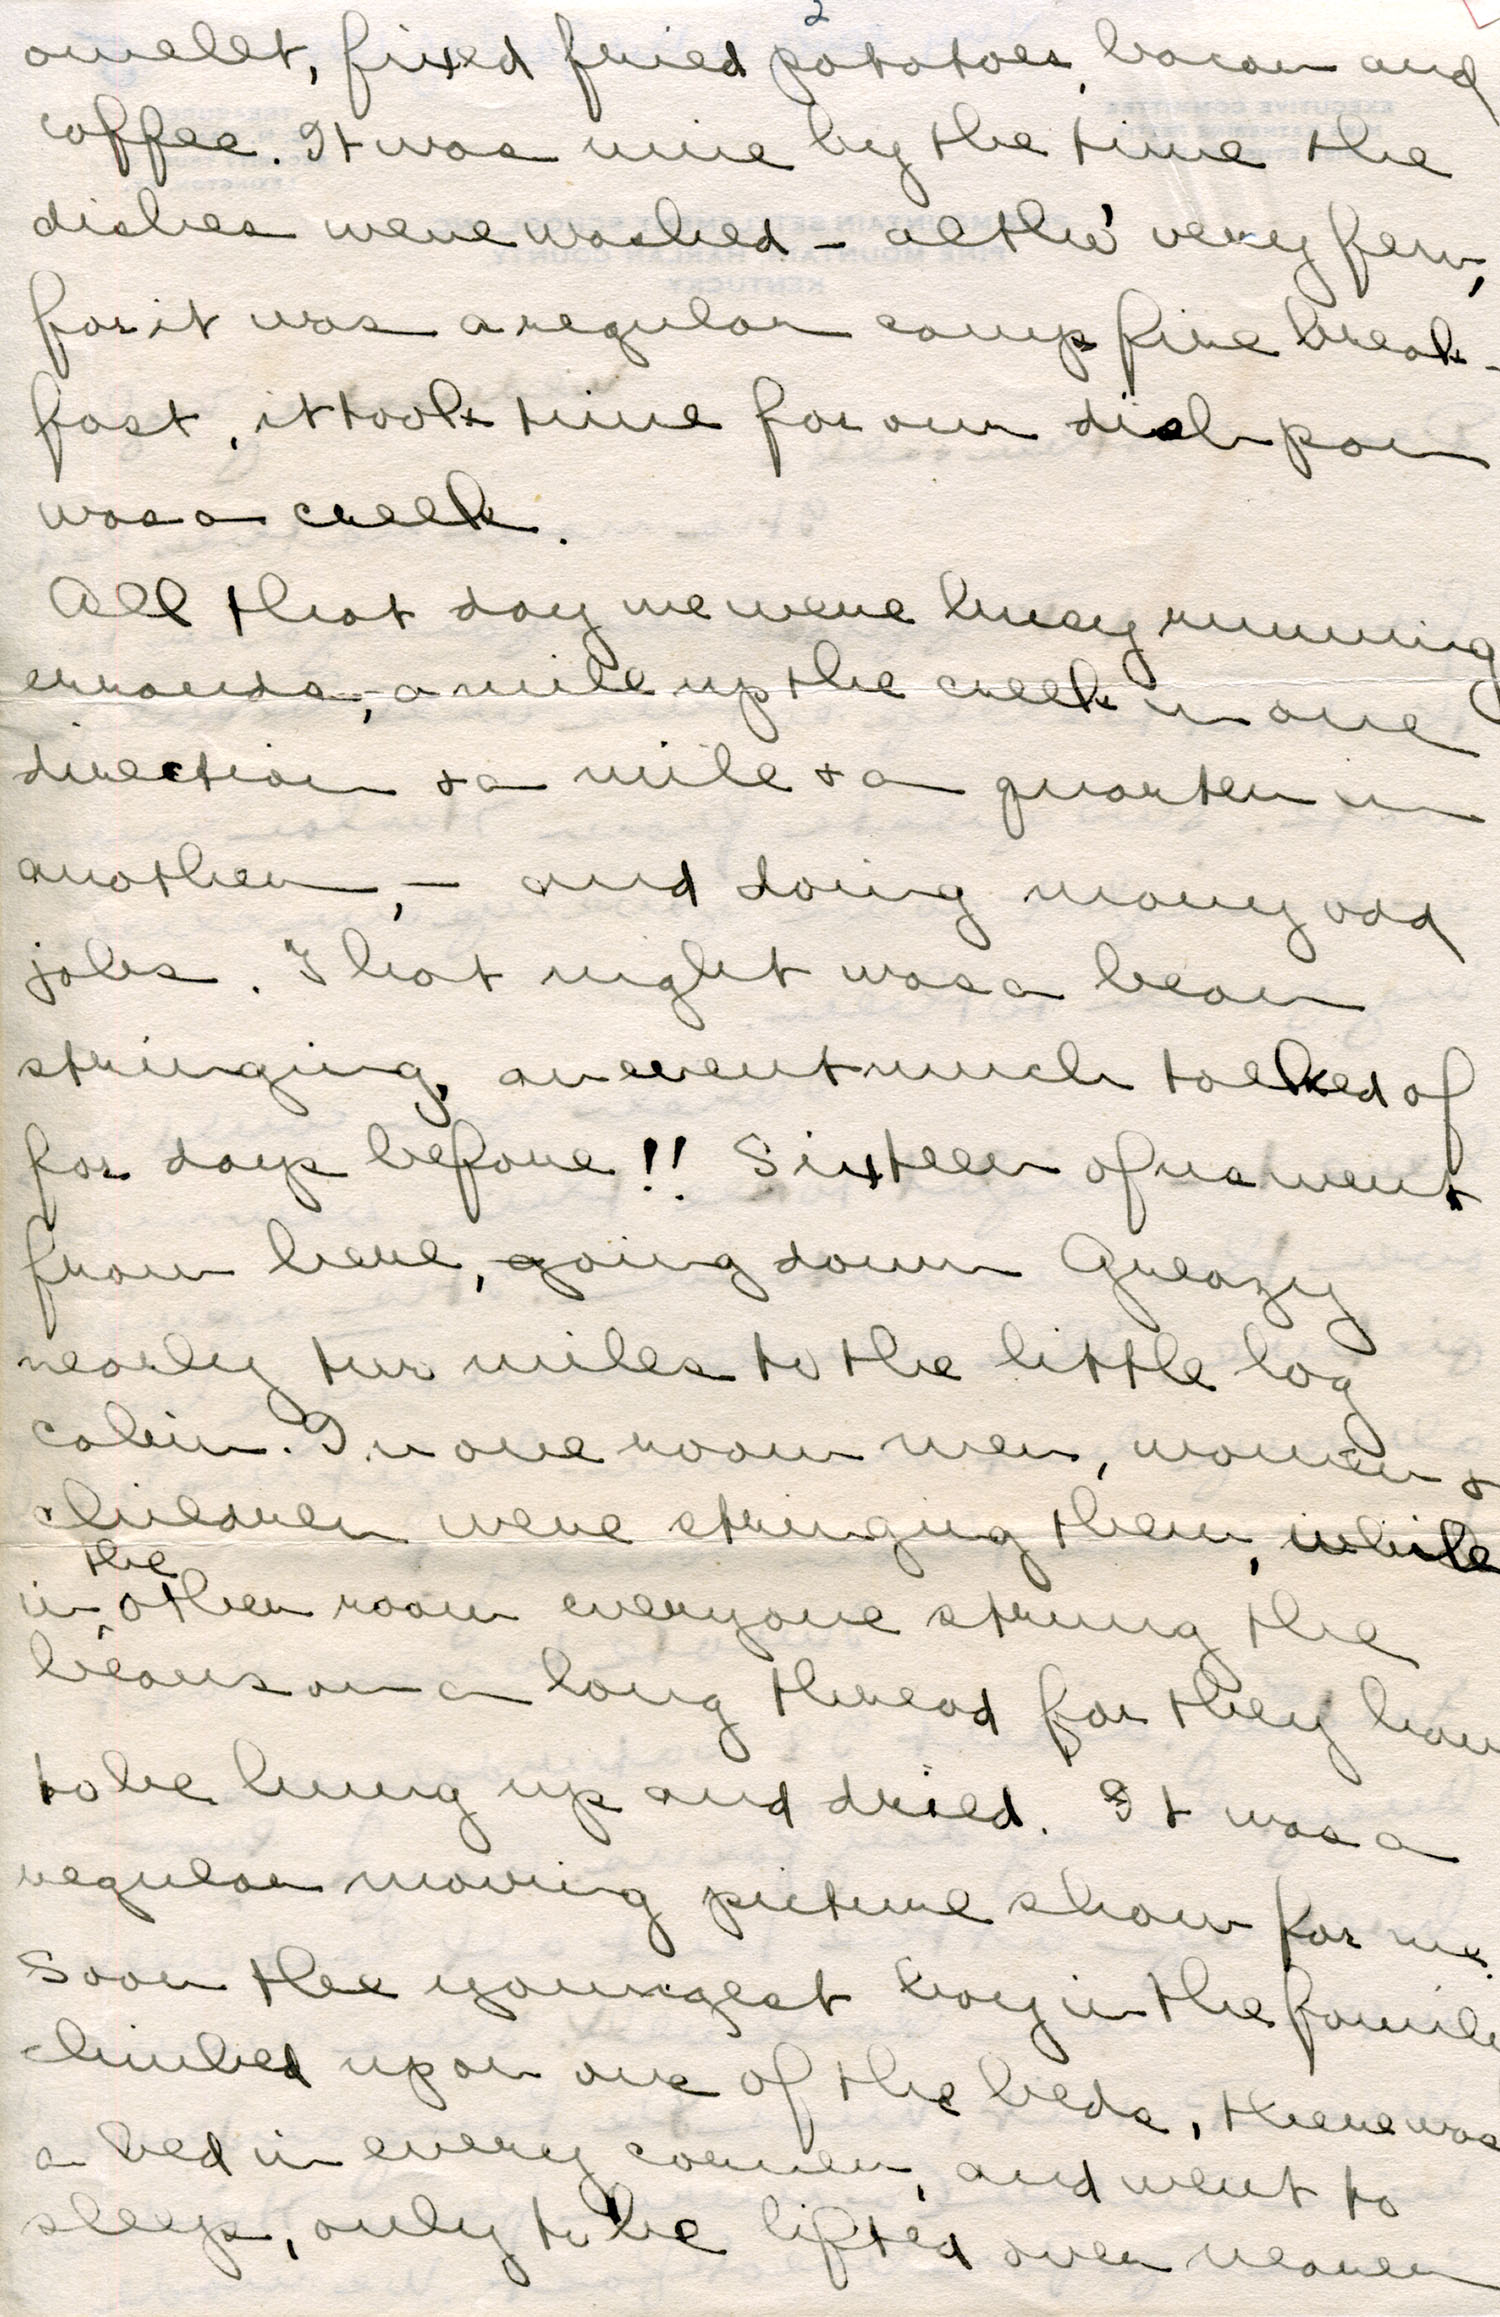 2
omelet, fixed fried potatoes, bacon and
coffee. It was nine by the time the
dishes were washed – altho' very few,
for it was a regular camp fire break-
fast, it took time for our dish pan
was a creek.
All that day we were busy running
errands, – a mile up the creek in one
direction & a mile & a quarter in
another, – and doing many odd
jobs. That night was a bean
stringing, an event much talked of
for days before!! Sixteen of us went
from here, going down Greazy
nearly two miles to the little log
cabin. In one room men, women &
children were stringing them, while
in the other room everyone strung the
beans on a long thread for they have
to be hung up and dried. It was a
regular moving picture show for me.
Soon the youngest boy in the family
climbed upon one of the beds, there was
a bed in every corner, and went to
sleep, only to be lifted over nearer